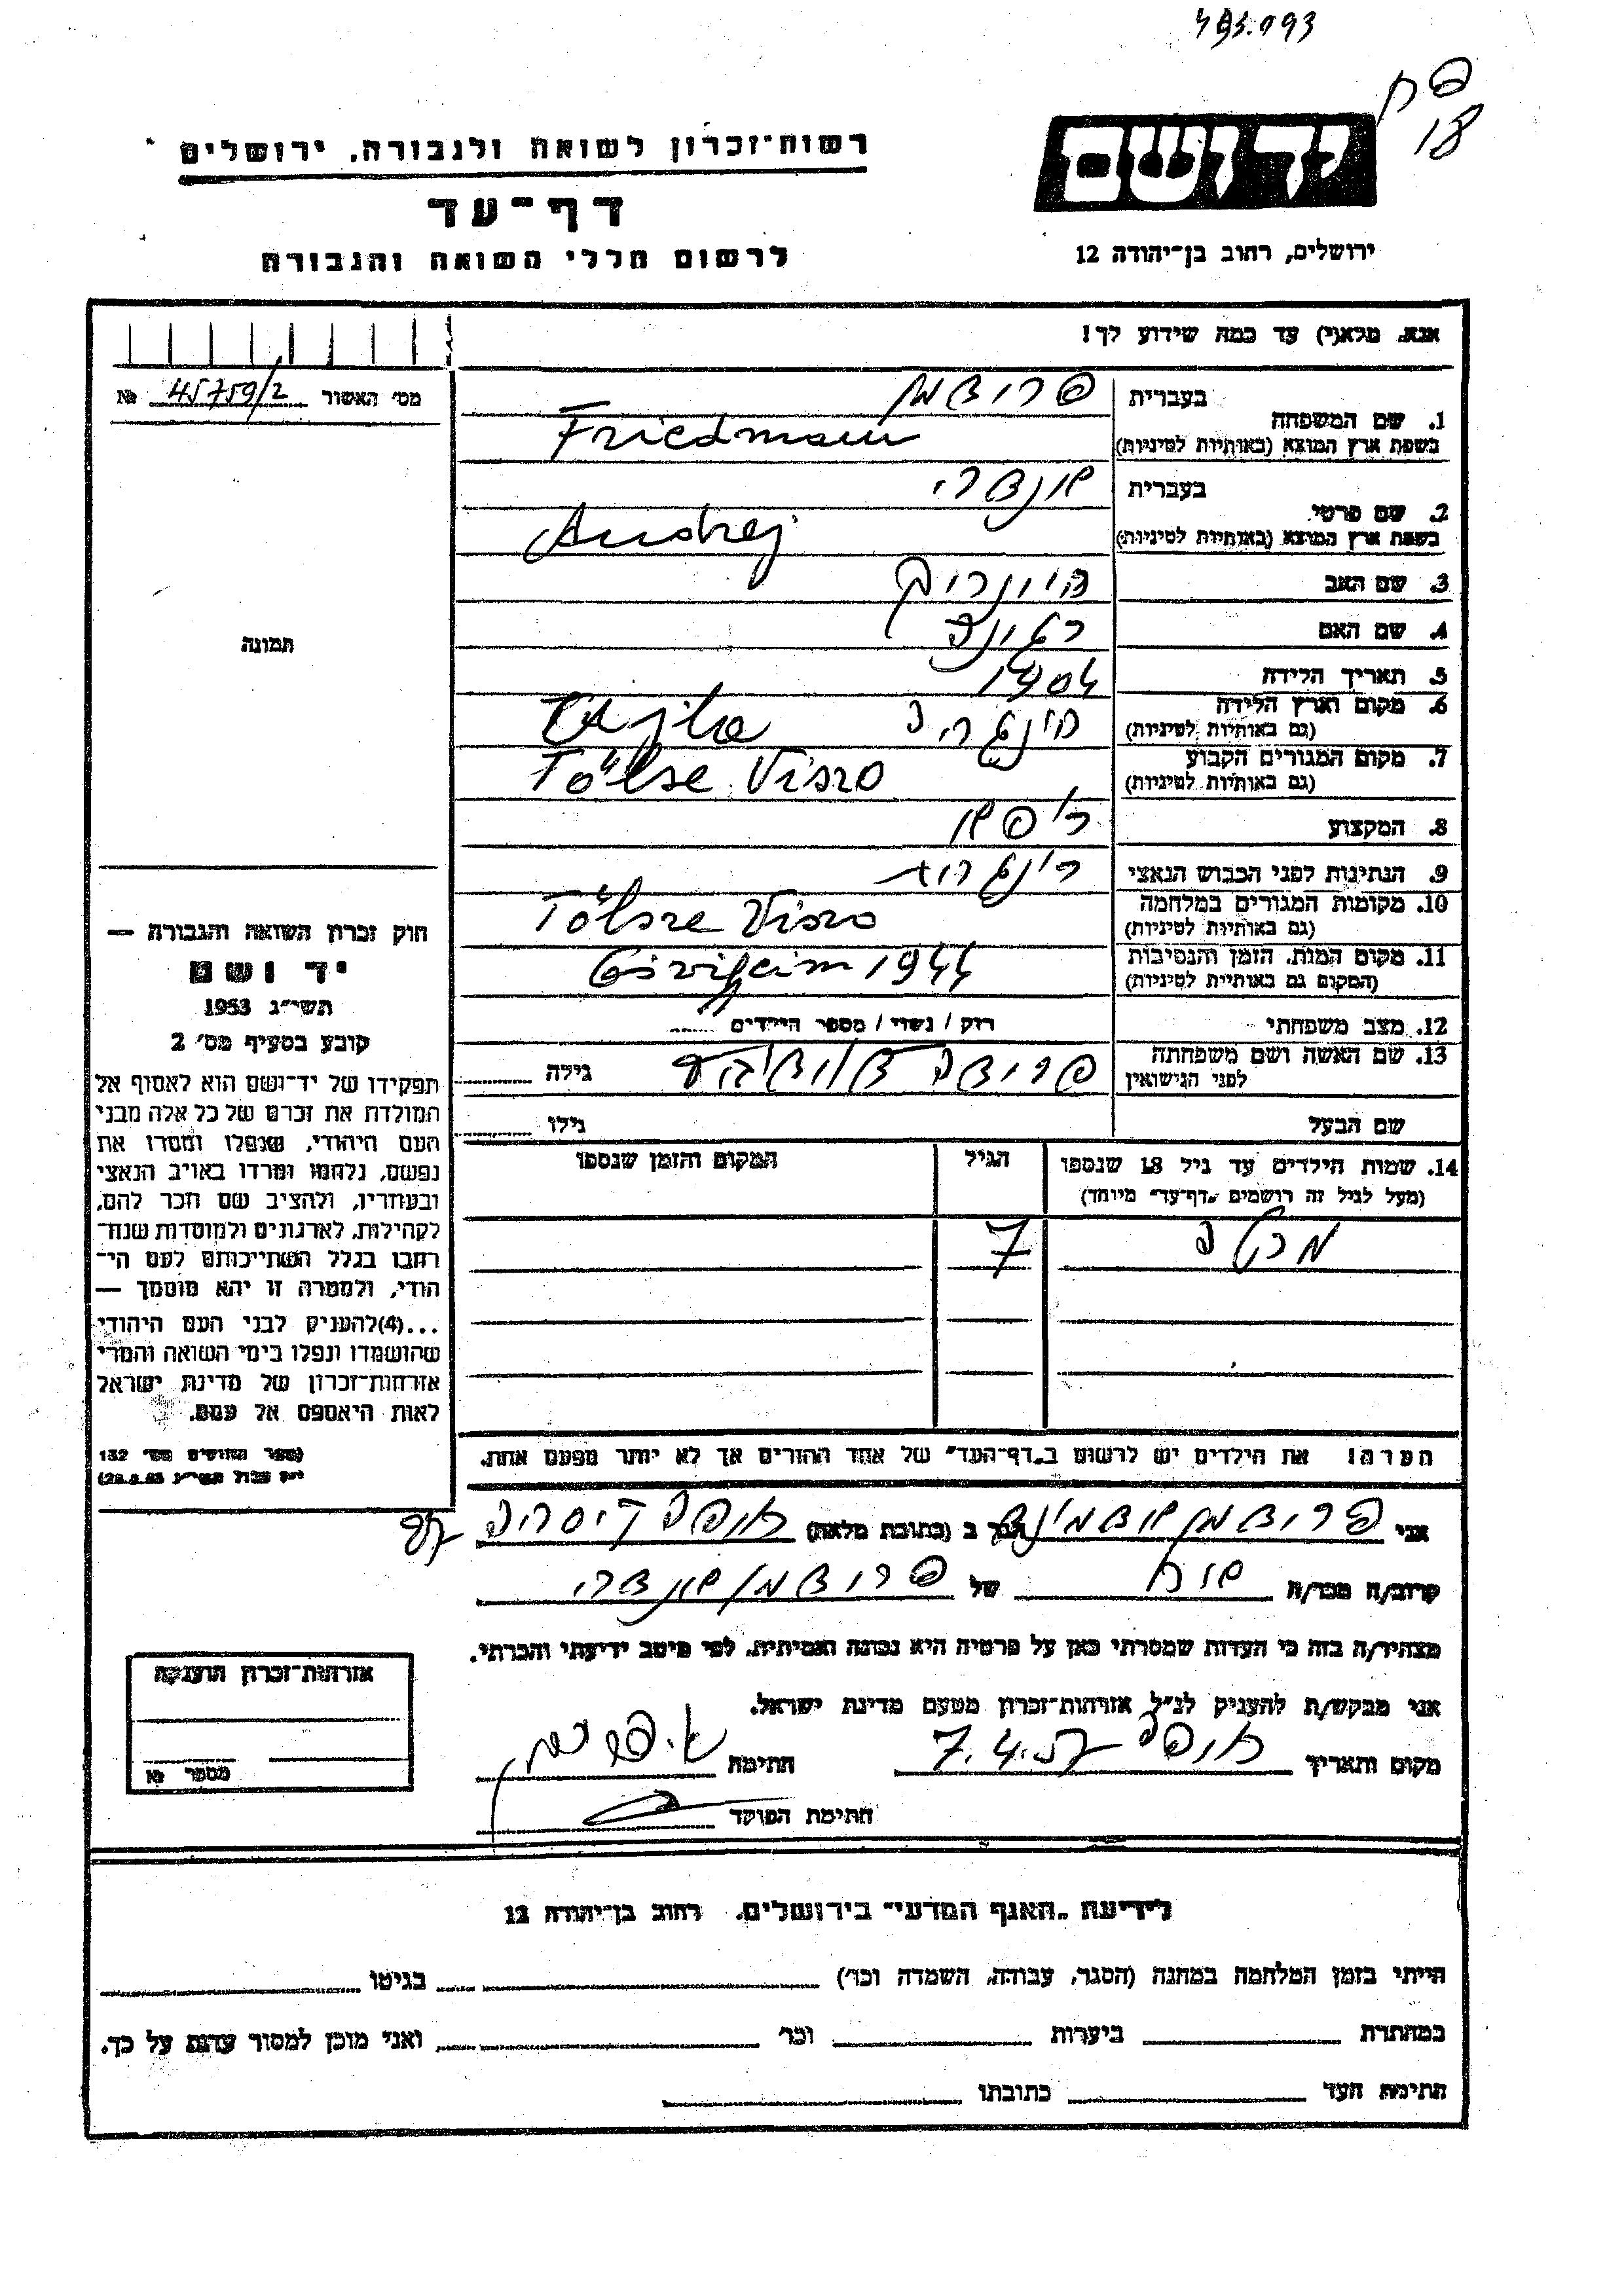 493.093
פח
18
יד ושם
רשות־זכרון לשואה ולגבורה, ירושלים
דף־עד
לרשום חללי השואה והגבורה
ירושלים, רחוב בן־יהודה 12
אנא, מלא(י) עד כמה שידוע לך!
מס׳ האשור 45759/2 №
1. שם המשפחה בעברית פרידמן
בשפת ארץ המוצא (באותיות לטיניות) Friedmann
2. שם פרטי בעברית אנדרי
בשפת ארץ המוצא (באותיות לטיניות) Andrej
3. שם האב היינריך
4. שם האם
5. תאריך הלידה 1904
6. מקום וארץ הלידה הונגריה
(גם באותיות לטיניות)
7. מקום המגורים הקבוע Tölse Viszo
(גם באותיות לטיניות)
8. המקצוע
9. הנתינות לפני הכבוש הנאצי הונגרית
10. מקומות המגורים במלחמה Tölsze Viszo
(גם באותיות לטיניות)
11. מקום המות, הזמן והנסיבות 1944
(המקום גם באותיות לטיניות)
12. מצב משפחתי רווק / נשוי / מספר הילדים
13. שם האשה ושם משפחתה
לפני הנישואין גילה
שם הבעל גילו
תמונה
חוק זכרון השואה והגבורה —
יד ושם
תשי״ג 1953
קובע בסעיף מס׳ 2
תפקידו של יד־ושם הוא לאסוף אל
המולדת את זכרם של כל אלה מבני
העם היהודי, שנפלו ומסרו את
נפשם, נלחמו ומרדו באויב הנאצי
ובעוזריו, ולהציב שם וזכר להם,
לקהילות, לארגונים ולמוסדות שנח־
רבו בגלל השתייכותם לעם הי־
הודי, ולמטרה זו יהא מוסמך —
...(4) להעניק לבני העם היהודי
שהושמדו ונפלו בימי השואה והמרי
אזרחות־זכרון של מדינת ישראל
לאות היאספם אל עמם.
(ספר החוקים מס׳ 132
14. שמות הילדים עד גיל 18 שנספו הגיל המקום והזמן שנספו
(מעל לגיל זה רושמים „דף־עד״ מיוחד)
7
הערה! את הילדים יש לרשום ב„דף־העד״ של אחד ההורים אך לא יותר מפעם אחת.
אני פרידמן הגר ב (כתובת מלאה)
קרוב/ה מכר/ה אח של פרידמן אנדרי
מצהיר/ה בזה כי העדות שמסרתי כאן על פרטיה היא נכונה ואמיתית, לפי מיטב ידיעתי והכרתי.
אני מבקש/ת להעניק לנ״ל אזרחות־זכרון מטעם מדינת ישראל.
מקום ותאריך 7.4.57 חתימה
חתימת הפוקד
אזרחות־זכרון הוענקה
מספר №
לידיעת „האגף המדעי״ בירושלים, רחוב בן־יהודה 12
הייתי בזמן המלחמה במחנה (הסגר, עבודה, השמדה וכו׳) בגיטו
במחתרת ביערות וכו׳ ואני מוכן למסור עדות על כך.
חתימת העד כתובתו